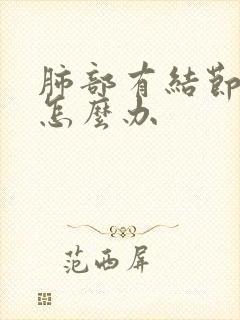 肺部有結節
怎麼办
范西屏